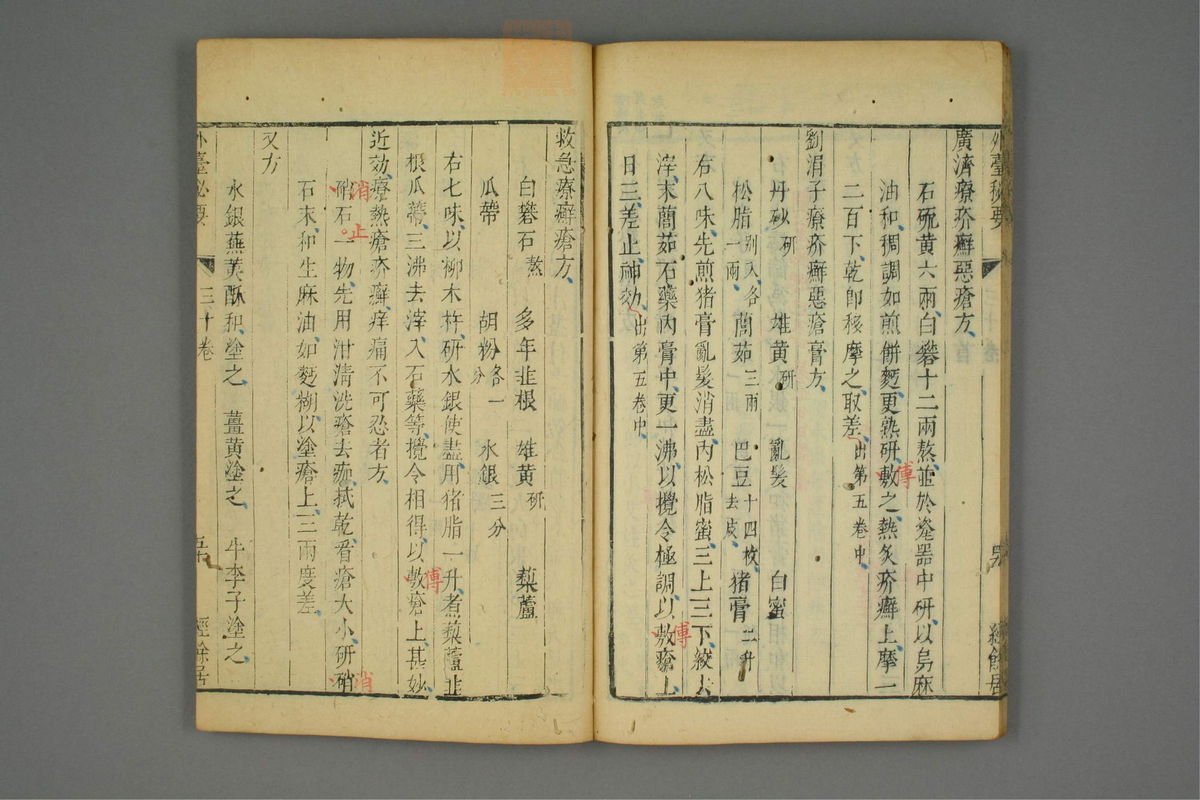 外臺秘要
廣濟療疥癬惡瘡方
石硫黃六兩白礬十二兩熬並於瓷器中研以烏麻
油和稠調如煎餅麪更熱研敷之熱炙疥癬上摩一
傅
二百下乾即移摩之取差出第五卷中
劉涓子療疥癬惡瘡膏方
丹砂研 雄黃研 亂髮 白蜜
松脂別入各一兩 䕡茹三兩 巴豆十四枚去皮 猪膏二升
右八味先煎猪膏亂髮消盡内松脂蜜三上三下絞去
滓末䕡茹石藥内膏中更一沸以攪令極調以敷瘡上
傅
日三差止神効出第五卷中
救急療癬瘡方
白礬石熬 多年韭根 雄黃研 藜蘆
瓜蒂 胡粉各一分 水銀三分
右七味以柳木杵研水銀使盡用猪脂一升煮藜蘆韭
根瓜蒂三沸去滓入石藥等攪令相得以敷瘡上甚妙
傅
近効療熱瘡疥癬痒痛不可忍者方
硝石一物先用泔清洗瘡去痂拭乾看瘡大小研硝
消 止 消
石末和生麻油如麪糊以塗瘡上三兩度差
又方
水銀蕪荑酥和塗之 薑黃塗之 牛李子塗之
外臺秘要 三十卷 經餘居